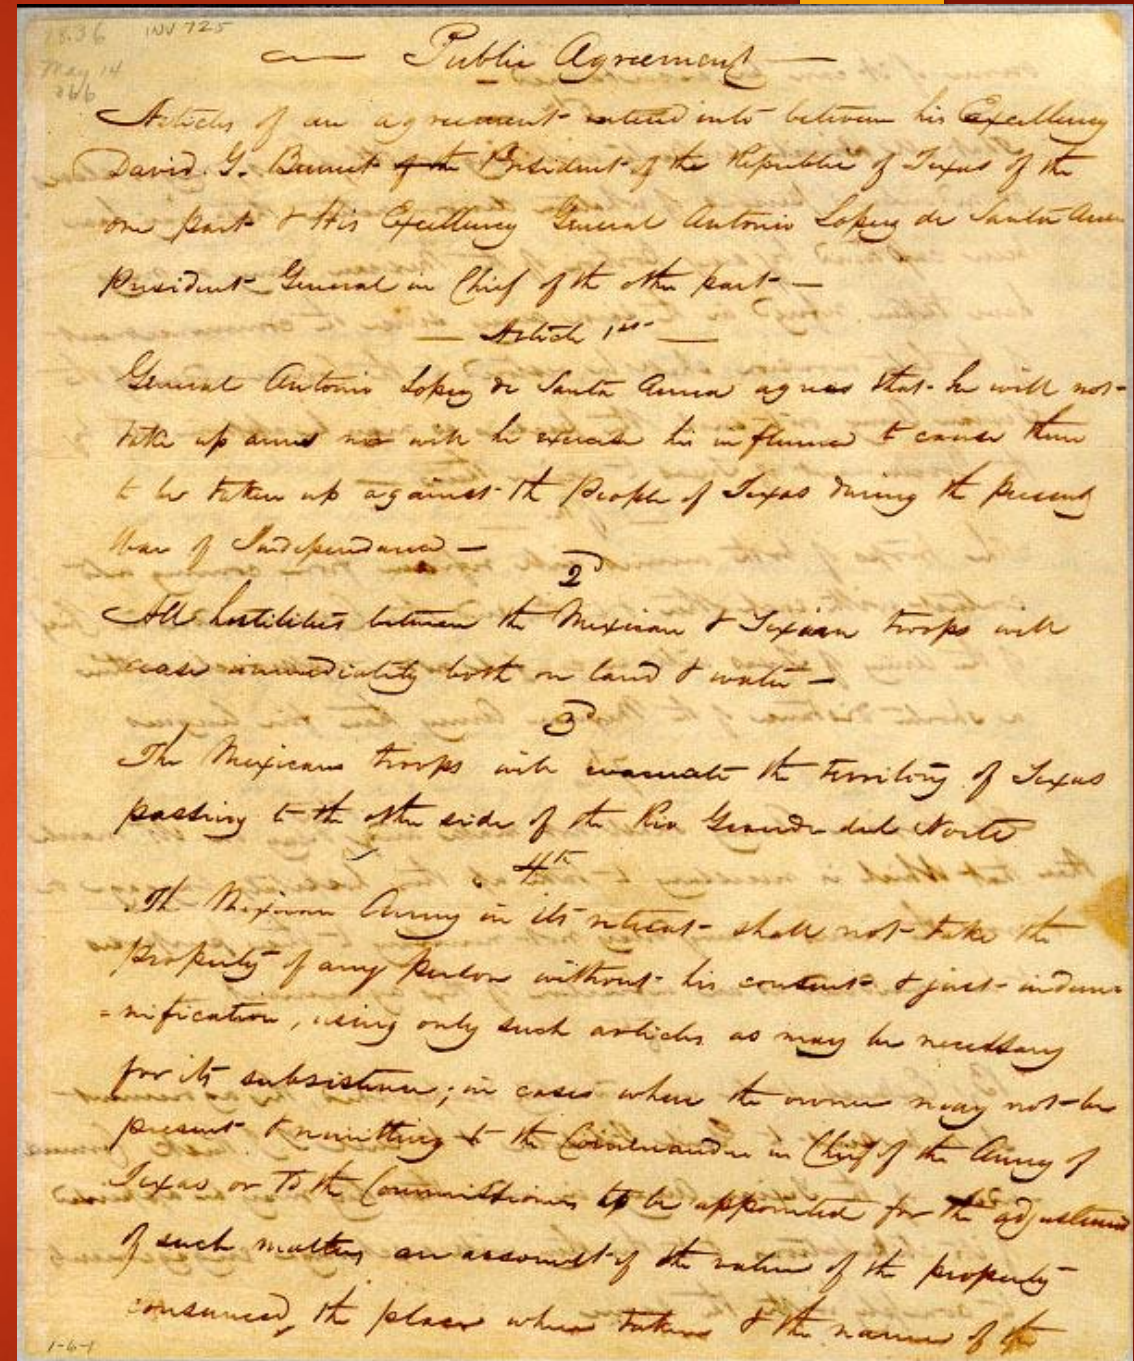 1836 INV 725
May 14
266
Public Agreement
Articles of an agreement entered into between his Excellency
David. G. Burnet of the President of the Republic of Texas of the
one part & His Excellency General Antonio Lopez de Santa Anna
President General in Chief of the other part —
— Article 1st —
General Antonio Lopez de Santa Anna agrees that he will not
take up arms nor will he exercise his influence to cause them
to be taken up against the People of Texas during the present
War of Independance —
2d
All hostilities between the Mexican & Texian troops will
cease immediately both on land & water —
3d
The Mexican troops will evacuate the territory of Texas
passing to the other side of the Rio Grande del Norte
4th
The Mexican Army in its retreat shall not take the
property of any person without his consent & just indem
=nification, using only such articles as may be necessary
for its subsistence; in cases when the owner may not be
present & remitting to the Commander in Chief of the Army of
Texas or to the Commissioners to be appointed for the adjustment
of such matters an account of the value of the property
consumed, the place where taken & the name of the
1-6-1